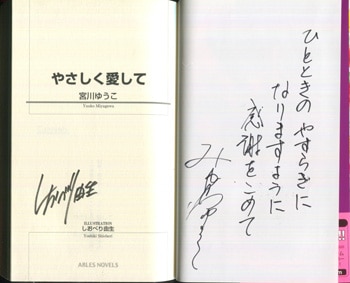 やさしく愛して
宮川ゆうこ
Yuuko Miyagawa
しおべり由生
ILLUSTRATION
しおべり由生
Yoshiki Shioberi
ARLES NOVELS
ひとときの やすらぎに
なりますように
感謝をこめて
みやがわゆうこ